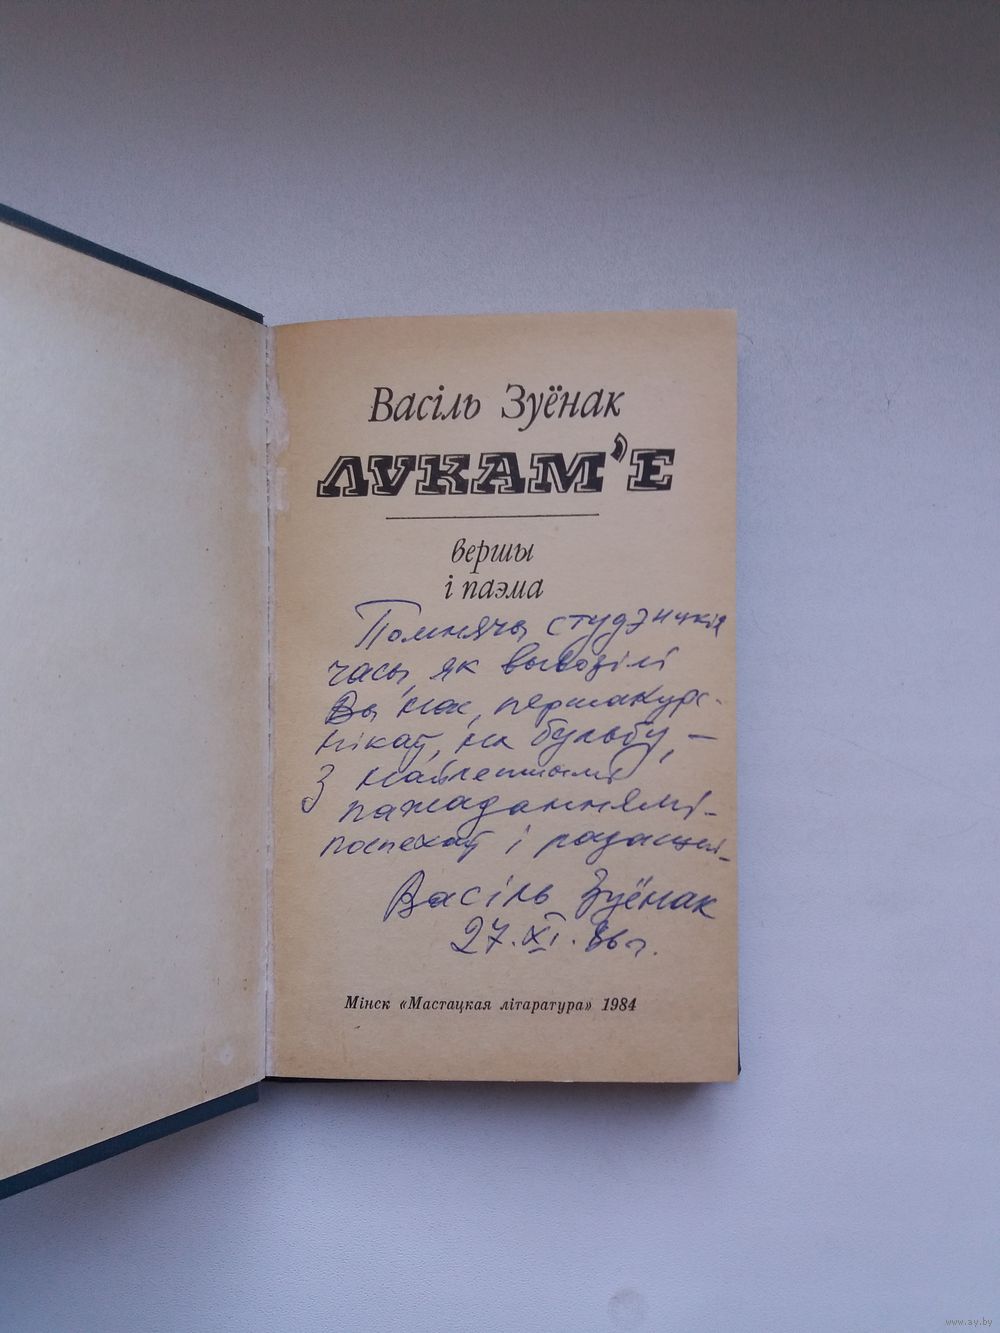 Васіль Зуёнак
ЛУКАМ'Е
вершы
і паэма
Помнячы студэнцкія
часы, як вывозілі
Вы нас, першакурс-
нікаў, на бульбу, –
З найлепшымі
пажаданнямі –
поспехаў і радасцей –
Васіль Зуёнак
27.XI.86 г.
Мінск «Мастацкая літаратура» 1984
www.ay.by